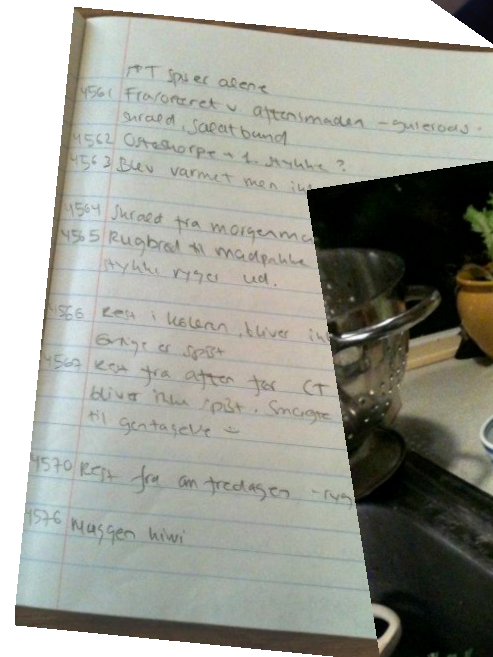 FT spiser alene
4561 Frasorteret v aftensmaden - gulerods-
skræld, salatbund
4562 Osteskorpe + 1 stykke ?
4563 Blev varmet men
4564 Skræld fra
4565 Rugbrød til madpakke
stykke ryger ud.
4566 Rest i køleren, bliver
spist
4567 Rest fra aften før
bliver ikke spist. Smagte
til gentagelse
4570 Rest fra
4576 Muggen kiwi